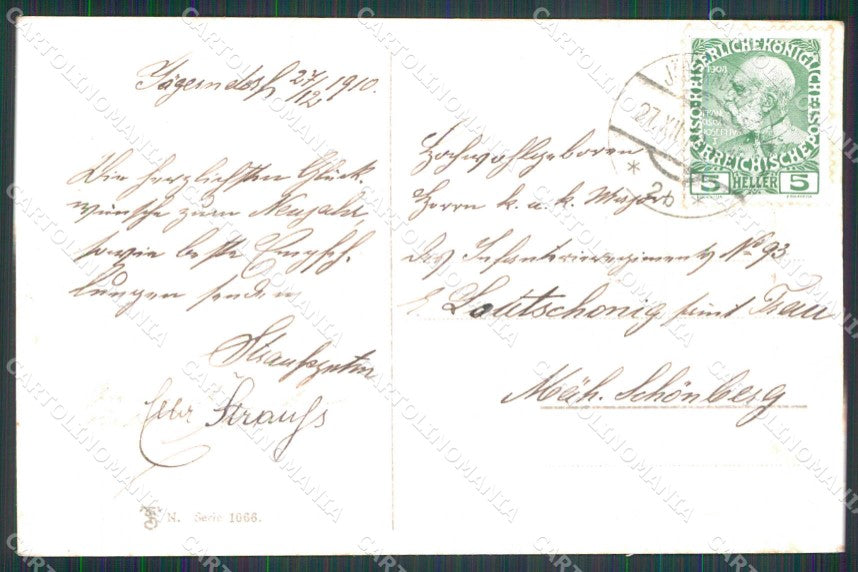 Jägerndorf 27/12 1910.
Die herzlichsten Glück-
wünsche zum Neujahr,
sowie beste Empfeh-
lungen senden
Strauss
N. Serie 1066.
Hochwohlgeboren
Herrn k. u. k. Major
des Infanterieregiments No 93
Lolitschonig samt Frau
Mäh. Schönberg
KAISERLICHE KÖNIGLICHE ÖSTERREICHISCHE POST
1908
FRANZ JOSEF I
5 HELLER 5
27.XII
2b
CARTOLINOMANIA